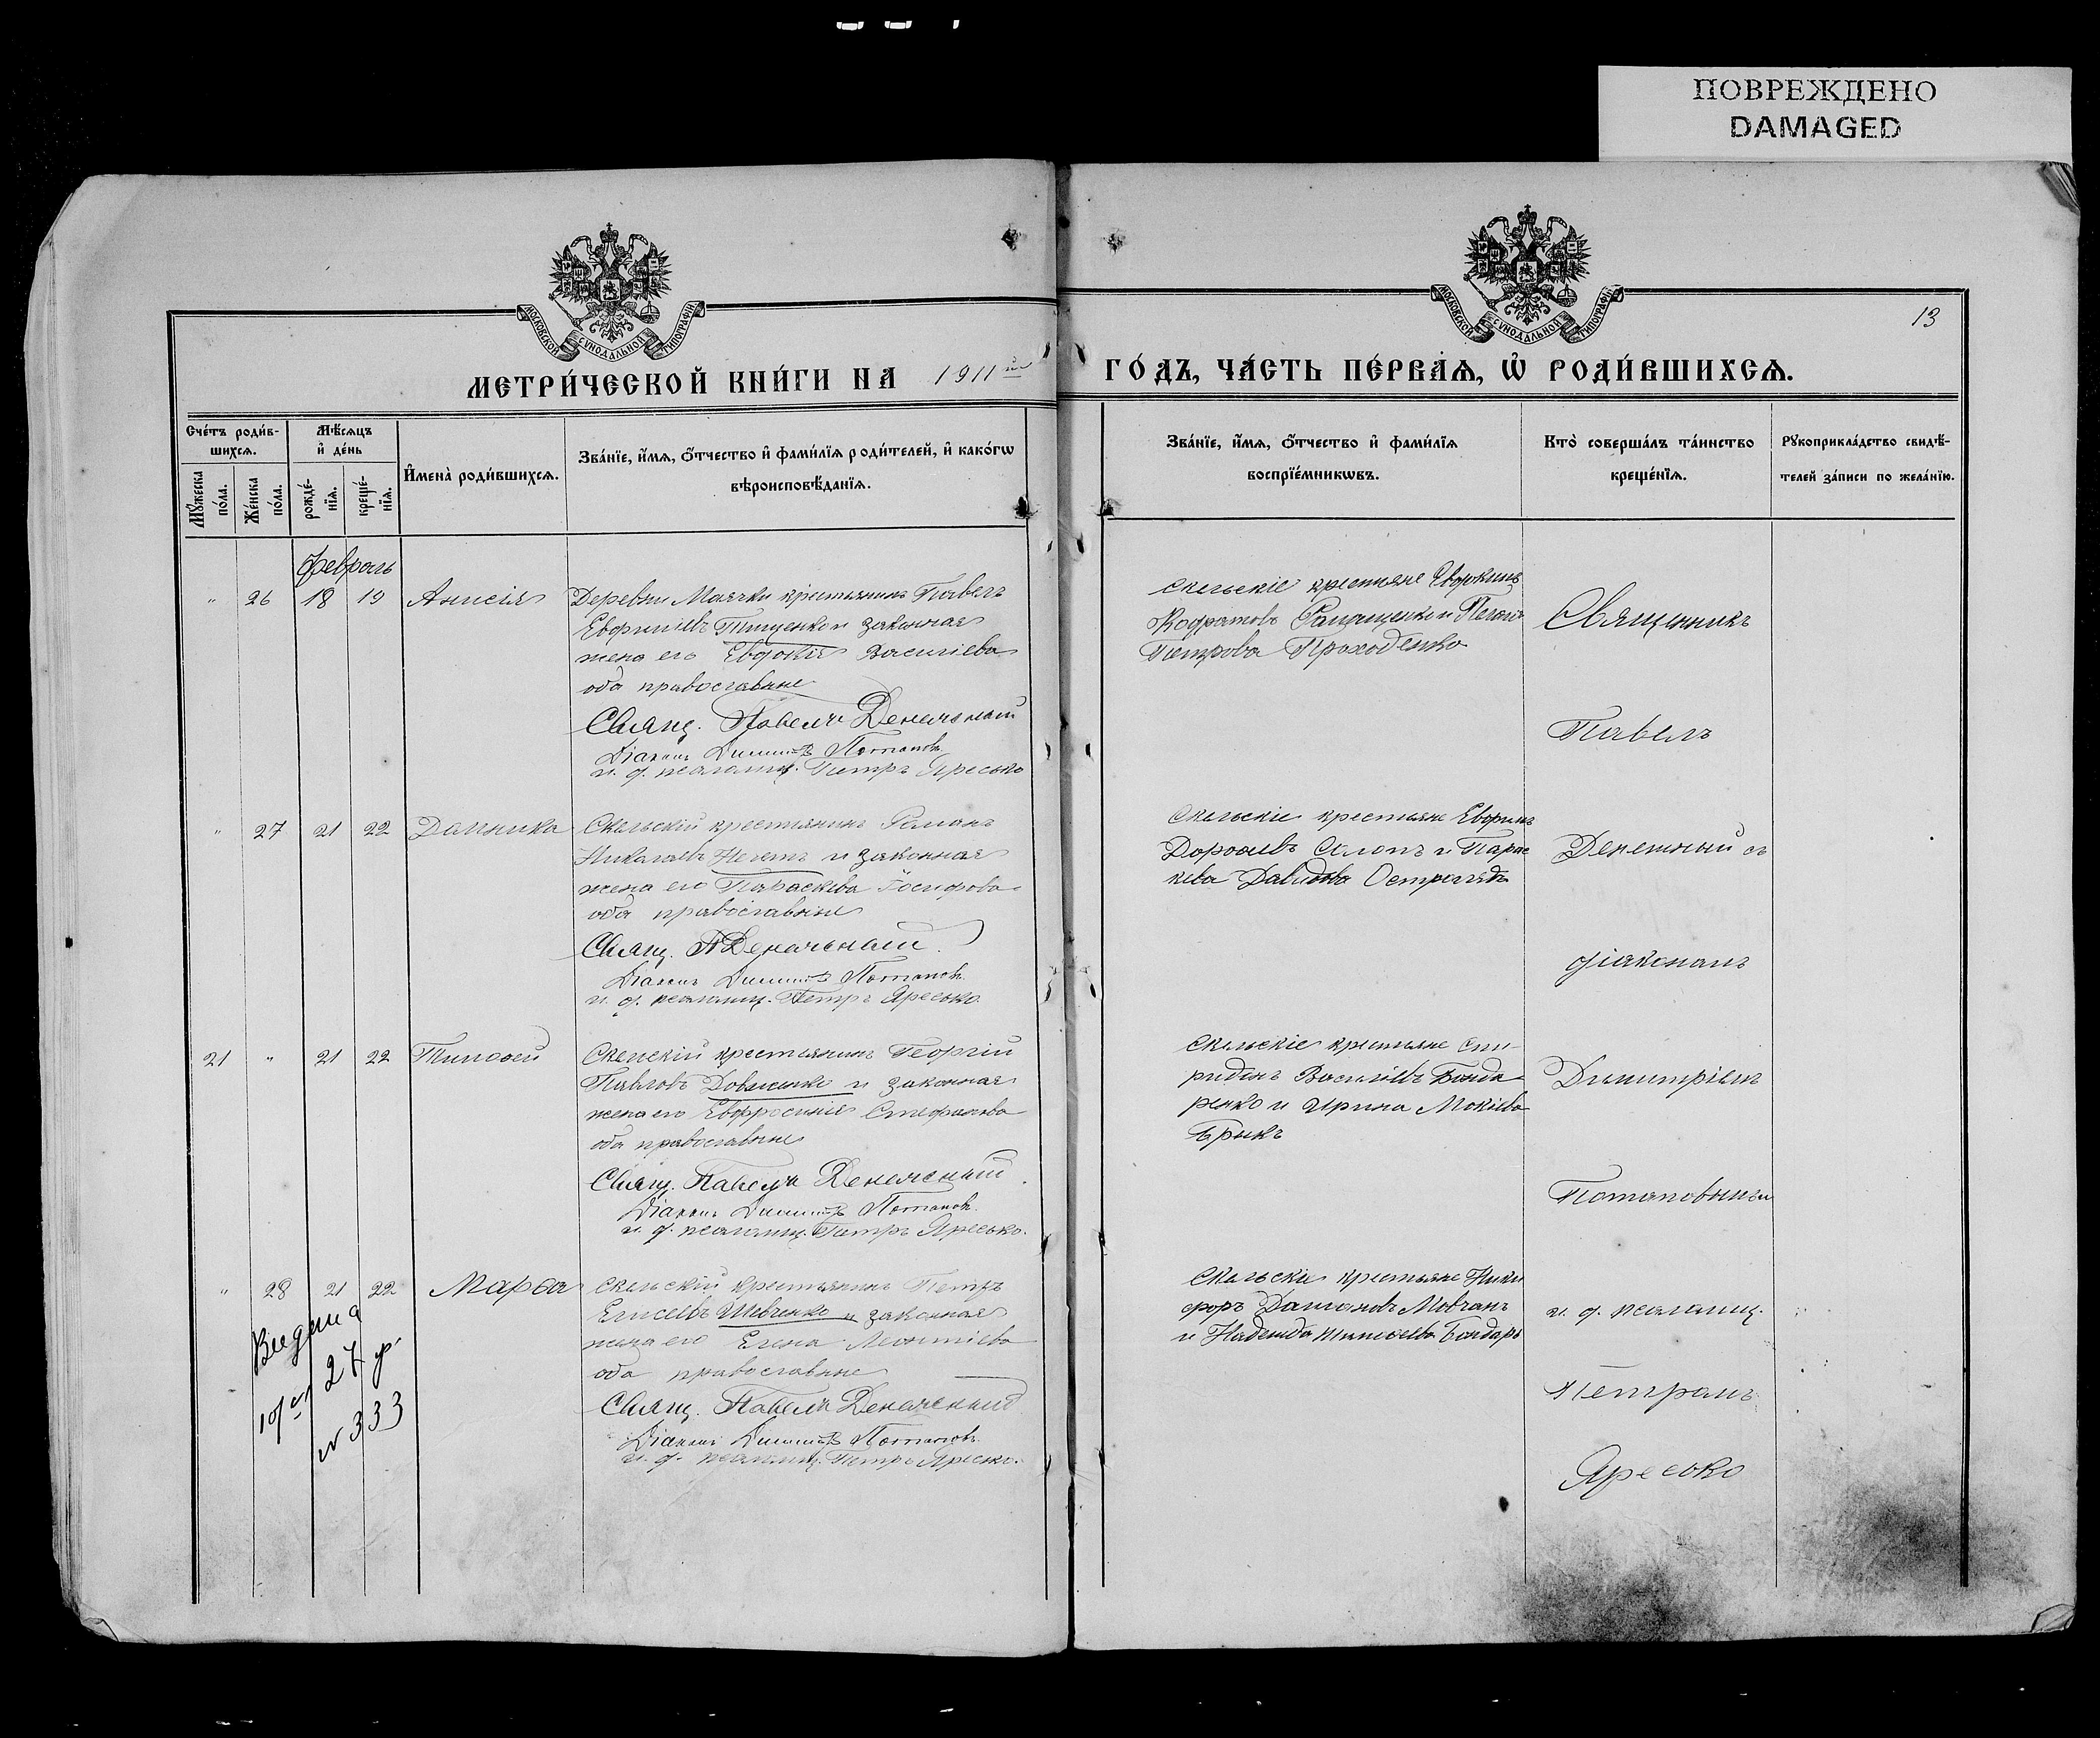 ПОВРЕЖДЕНО
DAMAGED
МОСКОВСКОЙ СѴНОДАЛЬНОЙ ТИПОГРАФІИ
МОСКОВСКОЙ СѴНОДАЛЬНОЙ ТИПОГРАФІИ
13
МЕТРИ́ЧЕСКОЙ КНИ́ГИ НА 1911й ГО́ДЪ, ЧА́СТЬ ПЕ́РВАѦ, Ѿ РОДИ́ВШИХСѦ.
Сче́тъ роди́в-
шихсѧ.
Мꙋ́жеска по́ла.
Же́нска по́ла.
Мѣ́сѧцъ
и҆ де́нь
рожде́-
нїѧ.
креще́-
нїѧ.
И҆мена̀ роди́вшихсѧ.
Зва́нїе, и҆́мѧ, ѻ҆́тчество и҆ фами́лїѧ роди́телей, и҆ како́гѡ
вѣроисповѣ́данїѧ.
Зва́нїе, и҆́мѧ, ѻ҆́тчество и҆ фами́лїѧ
воспрїе́мникѡвъ.
Кто̀ соверша́лъ та́инство
креще́нїѧ.
Рꙋкоприкла́дство свидѣ́-
телей за́писи по жела́нїю.
Февраль
" 26 18 19 Анисія
Деревни Маячки крестьянинъ Павелъ
Тищенко и законная
жена его Евдокія Василіева
оба православные
Свящ. Павелъ
Діаконъ Димитрій Потаповъ
и. д. псаломщ. Петръ Яресько
Скельскіе крестьяне
и
Петрова Проходенко
Священникъ
Павелъ
" 27 21 22 Домника
Скельскій крестьянинъ Романъ
Николаевъ и законная
жена его Параскева Іосифова
оба православные
Свящ. П
Діаконъ Димитрій Потаповъ
и. д. псаломщ. Петръ Яресько.
Скельскіе крестьяне
Дорофеевъ и Парас
кева Давидова
съ
діакономъ
21 " 21 22 Тимофей
Скельскій крестьянинъ Георгій
Павловъ Довженко и законная
жена его Евфросинія Стефанова
оба православные
Свящ. Павелъ
Діаконъ Димитрій Потаповъ.
и. д. псаломщ. Петръ Яресько.
Скельскіе крестьяне Спи-
ридонъ Василіевъ Бонда-
ренко и Ирина Мокіева
Брыкъ
Димитріемъ
Потаповымъ и
" 28 21 22 Марѳа
Скельскій крестьянинъ Петръ
Елисеевъ Шевченко и законная
жена его Елена Леонтіева
оба православные
Свящ. Павелъ
Діаконъ Димитрій Потаповъ.
и. д. псаломщ. Петръ Яресько.
Скельскіе крестьяне Ники
форъ Даміановъ Мовчанъ
и Надежда Тимофеева Бондарь
и. д. псаломщ.
Петромъ
Яресько
27 р.
N 333